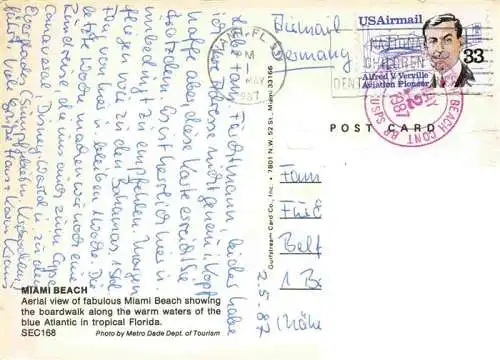 MIAMI, FL 331
PM
MAY
1987
Airmail
Germany
USAirmail
33
Alfred V. Verville
Aviation Pioneer
NATIONAL
CHILDREN
DENT
BEACH CONT
USPS
1987
POST CARD
Liebe Fam. leider habe
ich Ihre Adresse nicht genau i. Kopf,
hoffe aber diese Karte erreicht Sie
trotzdem. Es ist herrlich hier u.
unbedingt zu empfehlen. Morgen
fliegen wir zu den Bahamas, 1 Std.
von hier u. bleiben 1 Woche. Die
letzte Woche machen wir noch eine
Rundreise, die uns auch zum Cape
Canaveral, Disney World u. zu den
Everglades (Sumpfgebiet m. Krokodilen)
führt. Viele Grüße Hans + Karin
2.5.87
Fam
Belf
1 B
(Nähe
Gulfstream Card Co., Inc. • 7801 N.W. 52 St., Miami 33166
MIAMI BEACH
Aerial view of fabulous Miami Beach showing
the boardwalk along the warm waters of the
blue Atlantic in tropical Florida.
SEC168 Photo by Metro Dade Dept. of Tourism